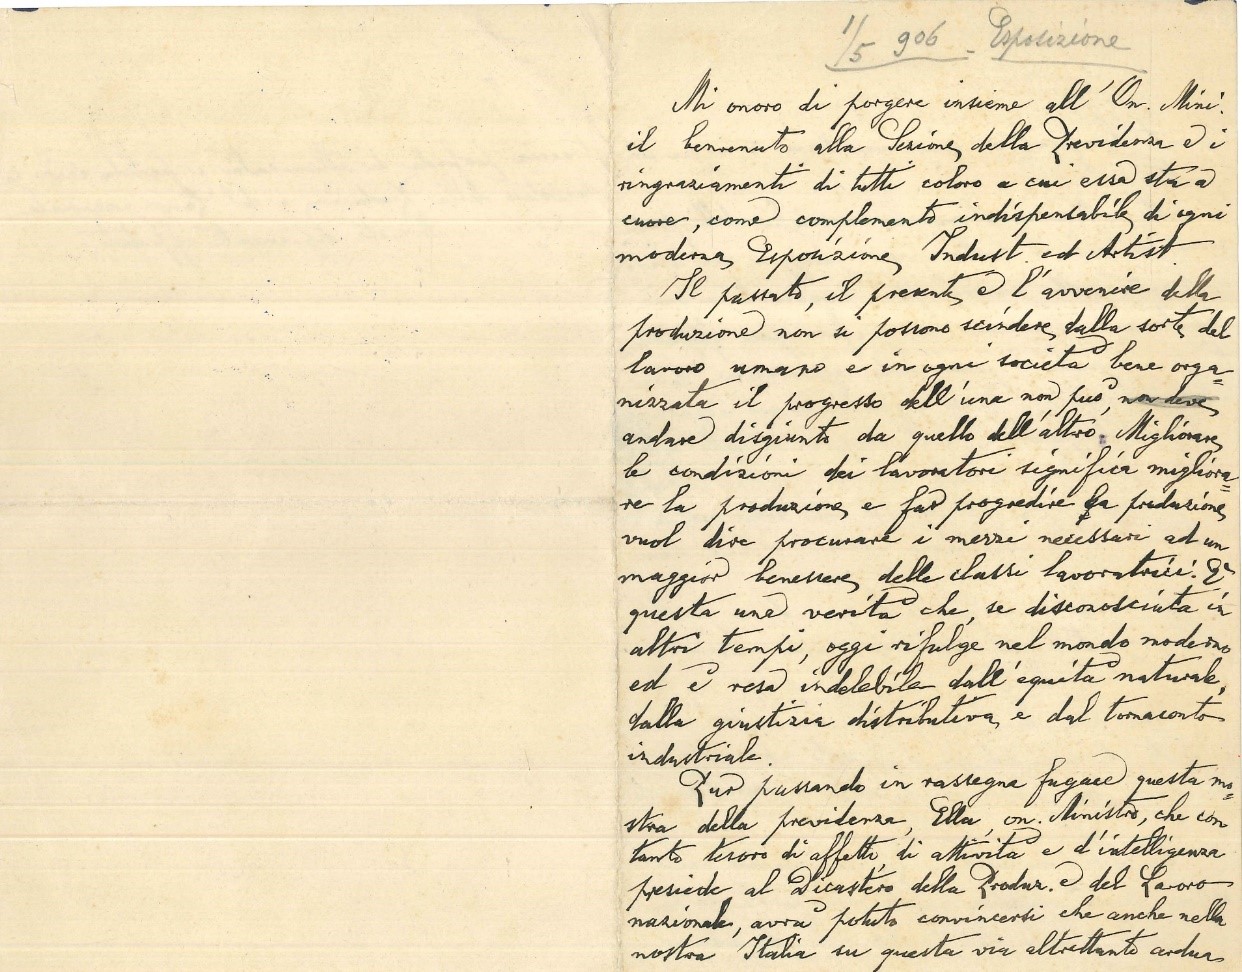 1/5 906 - Esposizione
Mi onoro di porgere insieme all'On. Mini.
il benvenuto alla Sezione della Previdenza e i
ringraziamenti di tutti coloro a cui essa sta a
cuore, come complemento indispensabile di ogni
moderna Esposizione Indust. ed Artist.
Il passato, il presente e l'avvenire della
produzione non si possono scindere dalla sorte del
lavoro umano e in ogni società bene orga=
nizzata il progresso dell'una non può, non deve
andare disgiunto da quello dell'altro. Migliorare
le condizioni dei lavoratori significa migliora=
re la produzione e far progredire la produzione
vuol dire procurare i mezzi necessari ad un
maggior benessere delle classi lavoratrici. E'
questa una verità che, se disconosciuta in
altri tempi, oggi rifulge nel mondo moderno
ed è resa indelebile dall'equità naturale,
dalla giustizia distributiva e dal tornaconto
industriale.
Pur passando in rassegna fugace questa mo=
stra della previdenza, Ella, on. Ministro, che con
tanto tesoro di affetti, di attività e d'intelligenza
presiede al Dicastero della Produz. e del Lavoro
nazionale, avrà potuto convincersi che anche nella
nostra Italia su questa via altrettanto ardua